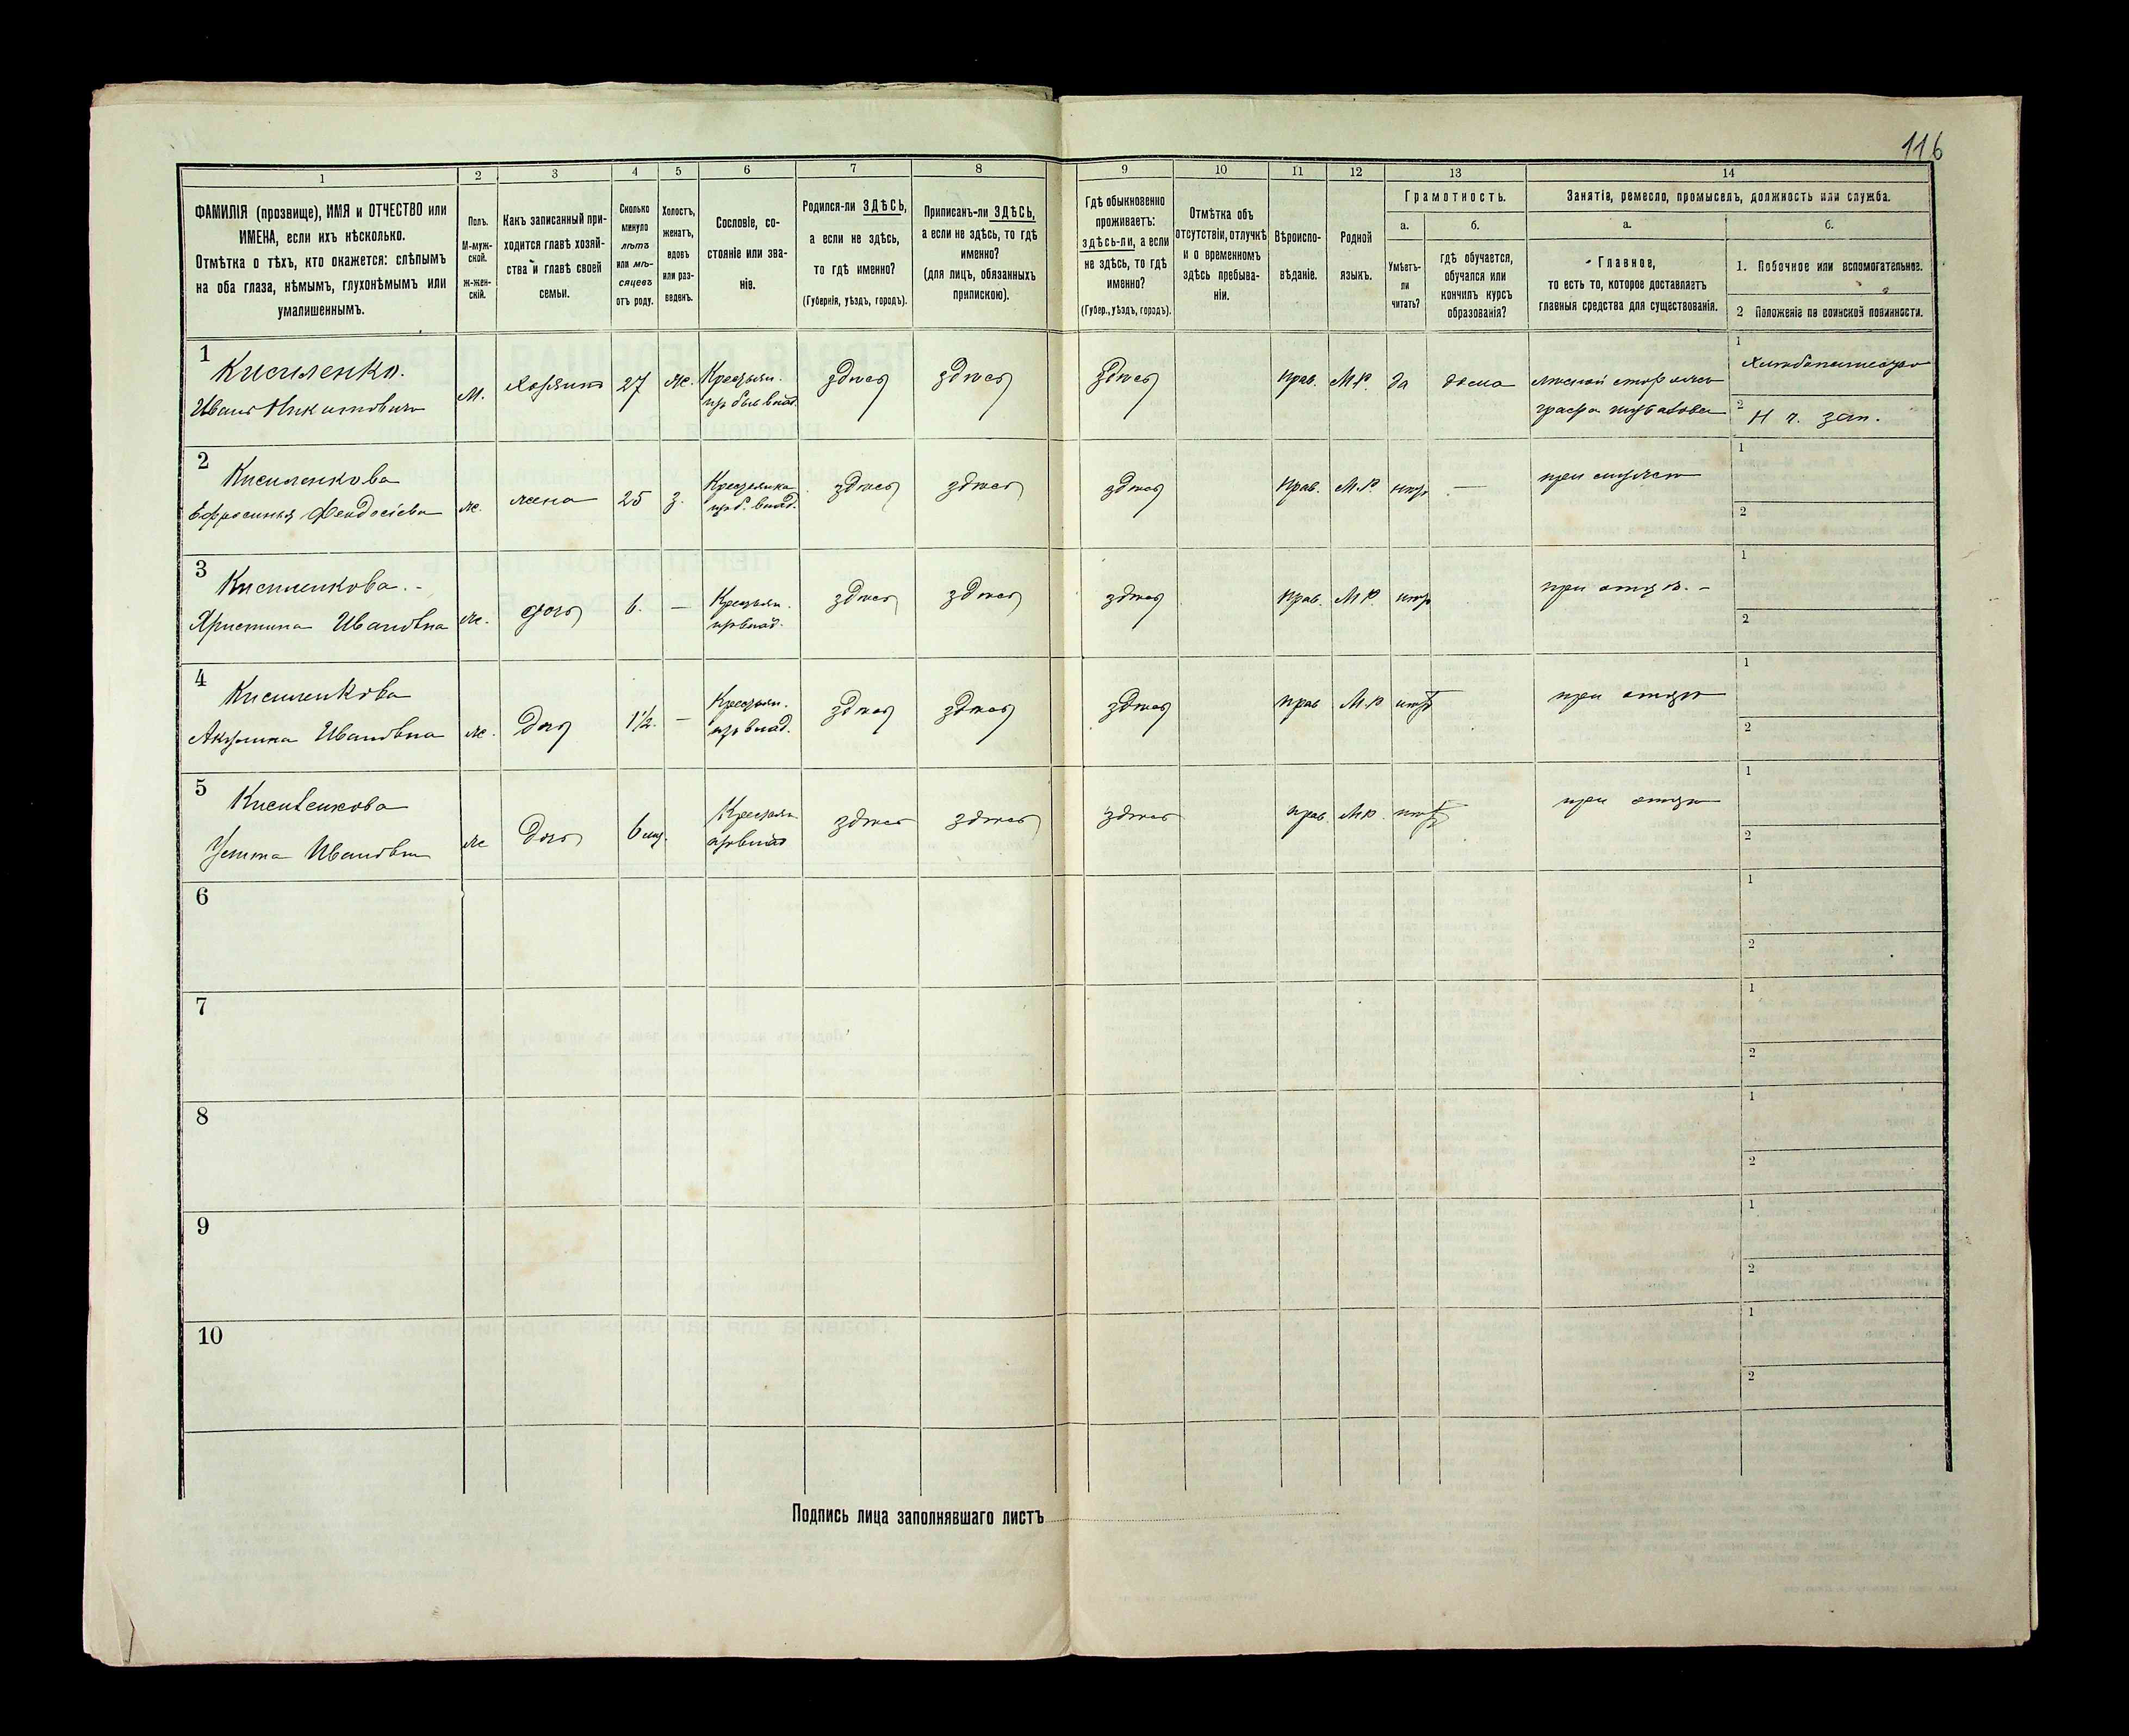 116
1
2
3
4
5
6
7
8
9
10
11
12
13
14
ФАМИЛІЯ (прозвище), ИМЯ и ОТЧЕСТВО или
ИМЕНА, если ихъ нѣсколько.
Отмѣтка о тѣхъ, кто окажется: слѣпымъ
на оба глаза, нѣмымъ, глухонѣмымъ или
умалишеннымъ.
Полъ.
М-муж-
ской.
ж-жен-
скій.
Какъ записанный при-
ходится главѣ хозяй-
ства и главѣ своей
семьи.
Сколько
минуло
лѣтъ
или мѣ-
сяцевъ
отъ роду.
Холостъ,
женатъ,
вдовъ
или раз-
веденъ.
Сословіе, со-
стояніе или зва-
ніе.
Родился-ли ЗДѢСЬ,
а если не здѣсь,
то гдѣ именно?
(Губернія, уѣздъ, городъ).
Приписанъ-ли ЗДѢСЬ,
а если не здѣсь, то гдѣ
именно?
(для лицъ, обязанныхъ
припискою).
Гдѣ обыкновенно
проживаетъ:
здѣсь-ли, а если
не здѣсь, то гдѣ
именно?
(Губер., уѣздъ, городъ).
Отмѣтка объ
отсутствіи, отлучкѣ
и о временномъ
здѣсь пребыва-
ніи.
Вѣроиспо-
вѣданіе.
Родной
языкъ.
Грамотность.
а.
Умѣетъ-
ли
читать?
б.
гдѣ обучается,
обучался или
кончилъ курсъ
образованія?
Занятіе, ремесло, промыселъ, должность или служба.
а.
Главное,
то есть то, которое доставляетъ
главныя средства для существованія.
б.
1. Побочное или вспомогательное.
2 Положеніе по воинской повинности.
1
Кисиленко.
Иванъ Никитовичъ
М.
Хозяинъ
27
Же.
Крестьян.
изъ быв влад.
здѣсь
здѣсь
здѣсь
Прав.
М.Р.
да
дома
графа
1
2
Н ч. зап.
2
Кисиленкова
Ефросинья Феодосіева
же.
жена
25
з.
Крестьянка
изъ б. влад.
здѣсь
здѣсь
здѣсь
Прав.
М.Р.
нѣтъ
—
при
1
2
3
Кисиленкова.
Христина Ивановна
же.
дочь
6.
—
Крестьян.
изъ влад.
здѣсь
здѣсь
здѣсь
Прав.
М.Р.
нѣтъ
при отцѣ. -
1
2
4
Кисиленкова
Акулина Ивановна
же.
Дочь
1½.
—
Крестьян.
изъ влад.
здѣсь
здѣсь
здѣсь
прав
М.Р
нѣтъ
при отцѣ
1
2
5
Кисиленкова
Ивановна
же
Дочь
6 мѣ.
Крестьян
изъ влад
здѣсь
здѣсь
здѣсь
прав.
М.Р.
нѣтъ
при отцѣ
1
2
6
1
2
7
1
2
8
1
2
9
1
2
10
1
2
Подпись лица заполнявшаго листъ